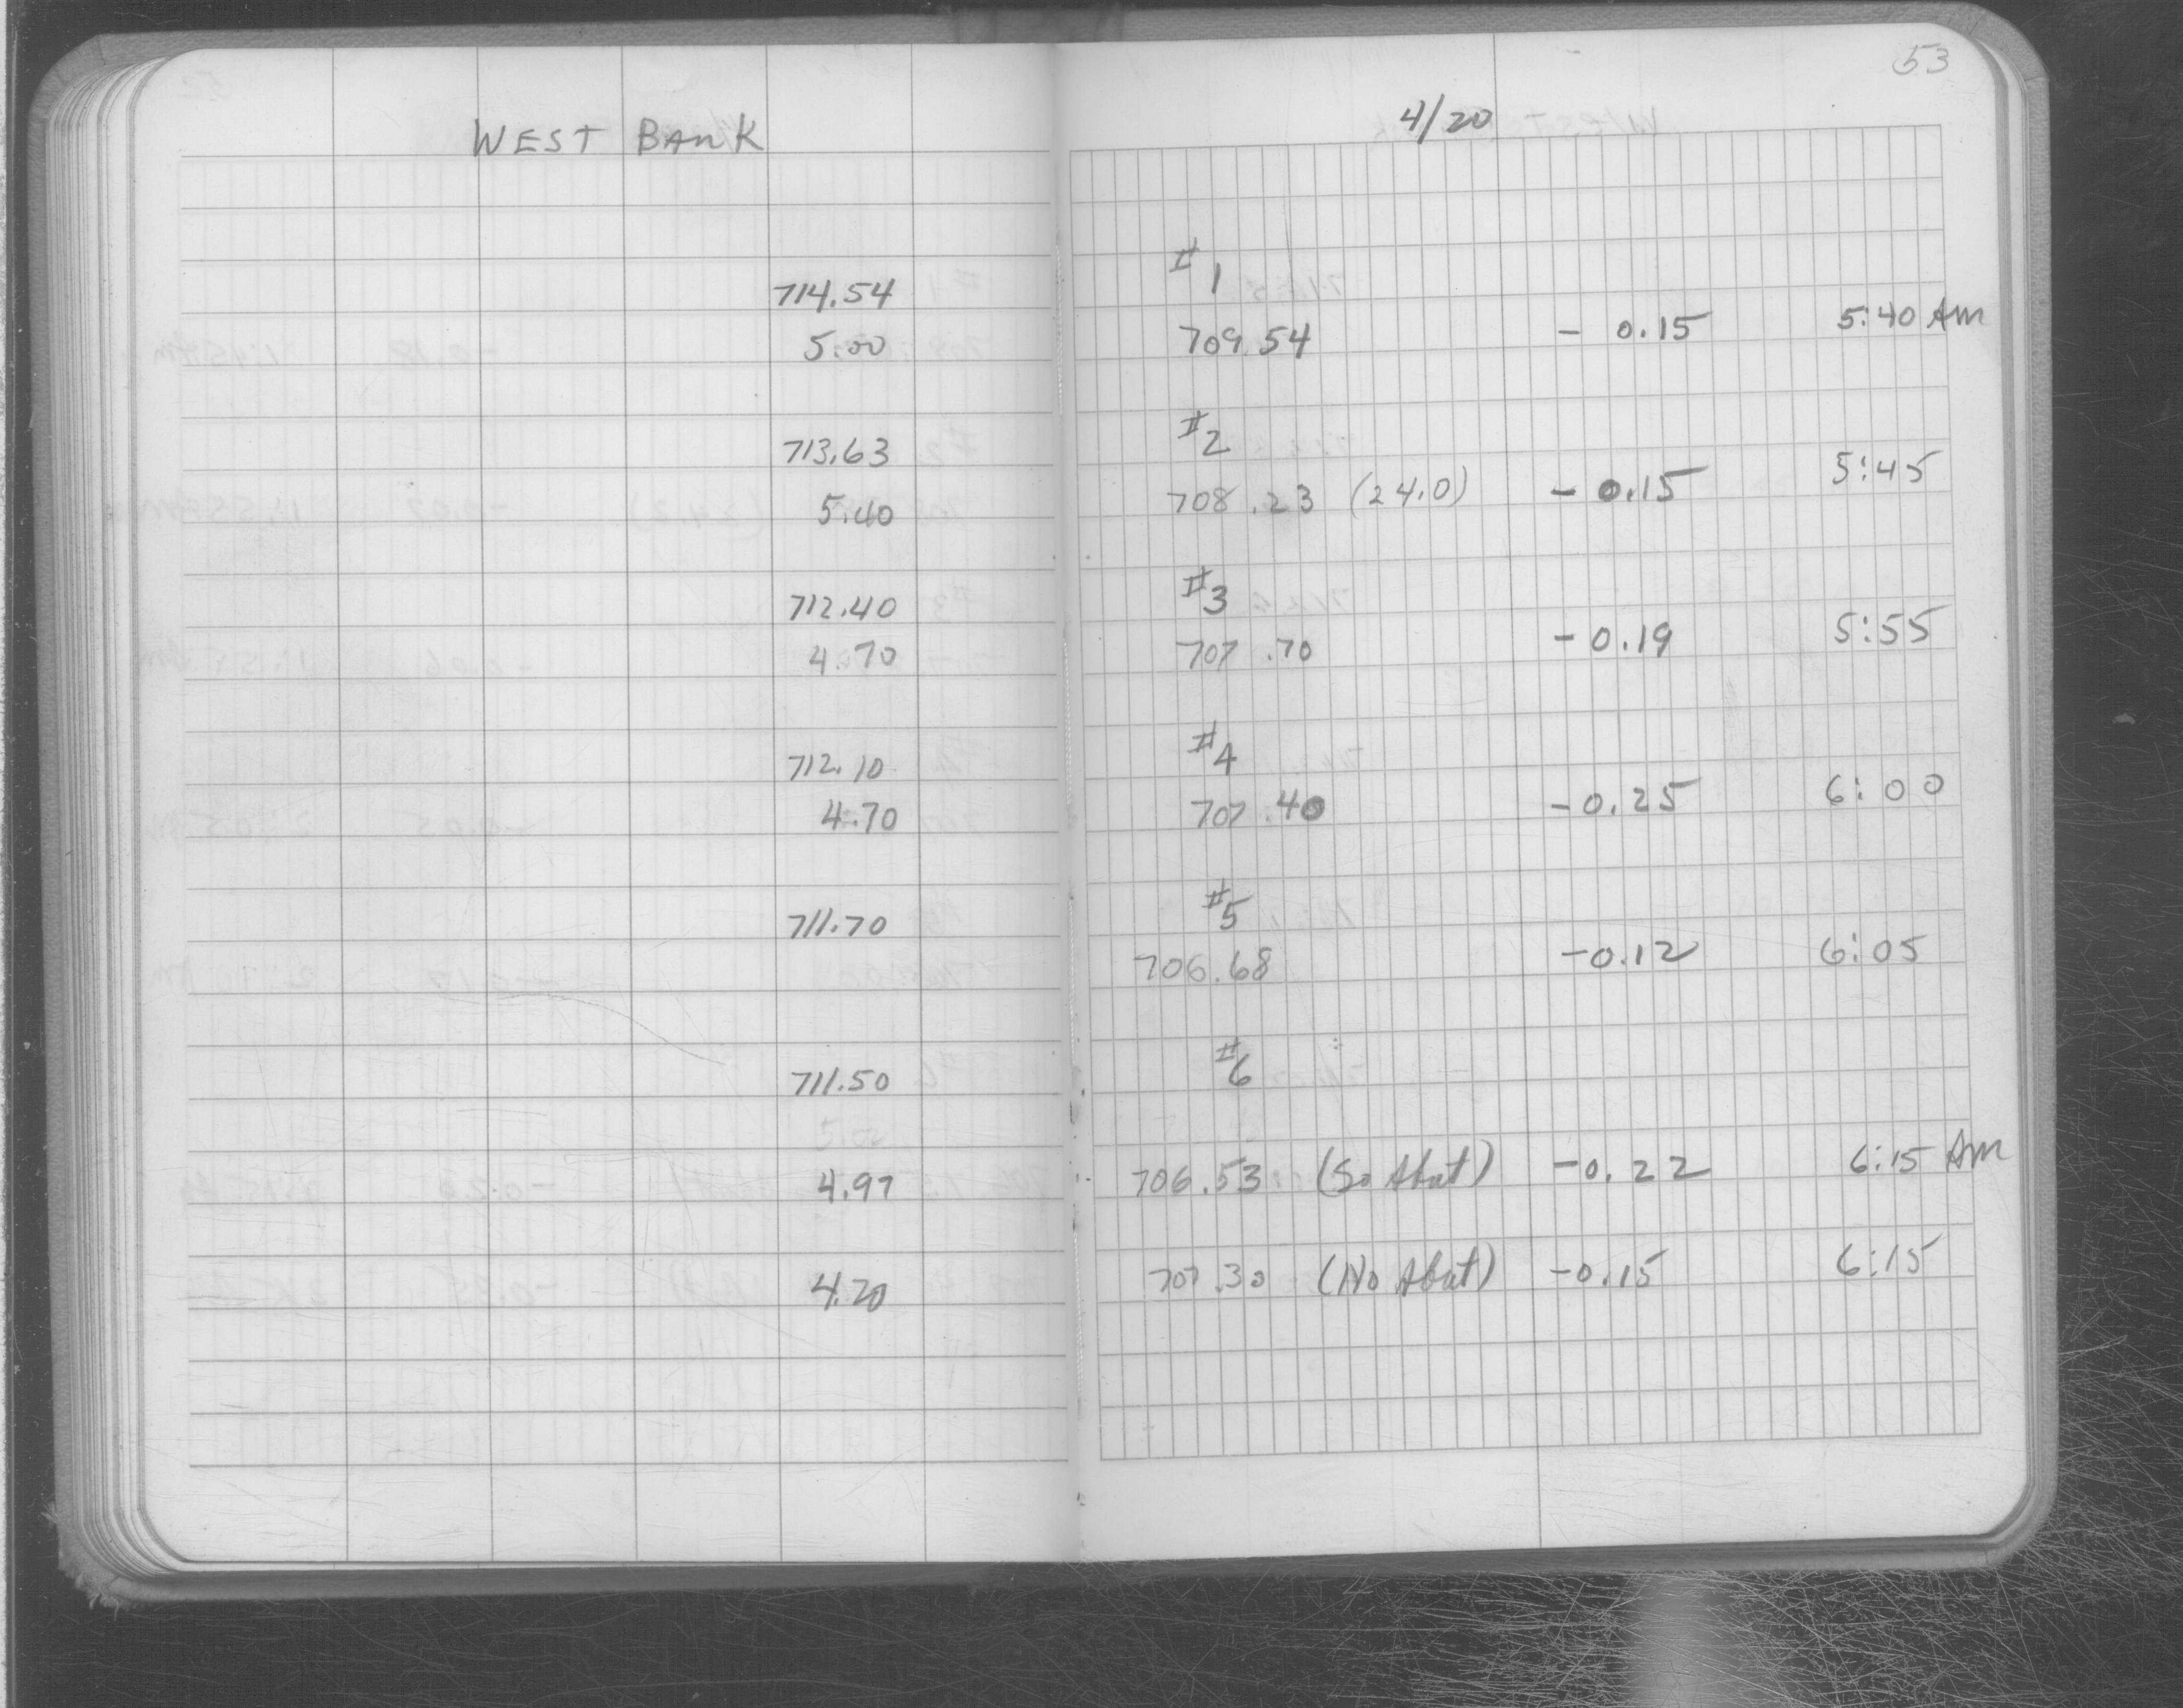 53
WEST BANK 4/20
#1
714.54
5.00 709.54 - 0.15 5:40 Am
#2
713.63
5.40 708.23 (24.0) - 0.15 5:45
#3
712.40
4.70 707.70 - 0.19 5:55
#4
712.10
4.70 707.40 - 0.25 6:00
#5
711.70
706.68 - 0.12 6:05
#6
711.50
5.02
4.97 706.53 (So Abut) - 0.22 6:15 Am
4.20 707.30 (No Abut) - 0.15 6:15